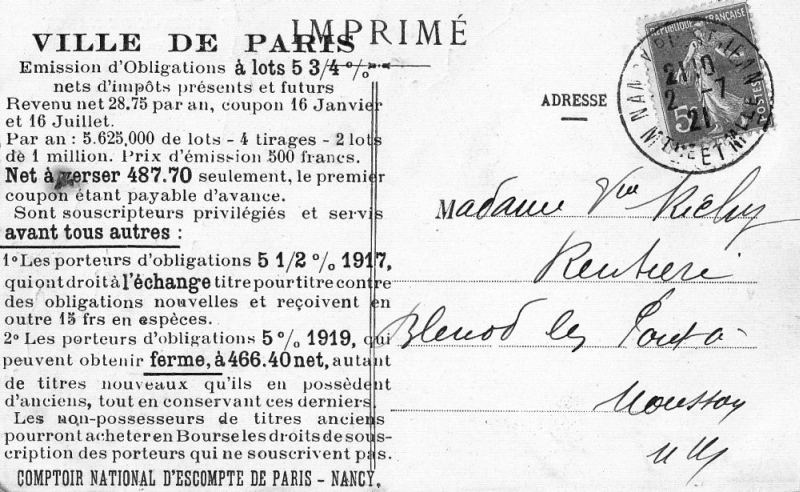 IMPRIMÉ
VILLE DE PARIS
Emission d'Obligations à lots 5 3/4 %
nets d'impôts présents et futurs
Revenu net 28.75 par an, coupon 16 Janvier
et 16 Juillet.
Par an : 5.625,000 de lots - 4 tirages - 2 lots
de 1 million. Prix d'émission 500 francs.
Net à verser 487.70 seulement, le premier
coupon étant payable d'avance.
Sont souscripteurs privilégiés et servis
avant tous autres :
1° Les porteurs d'obligations 5 1/2 % 1917,
qui ont droit à l'échange titre pour titre contre
des obligations nouvelles et reçoivent en
outre 15 frs en espèces.
2° Les porteurs d'obligations 5 % 1919, qui
peuvent obtenir ferme, à 466.40 net, autant
de titres nouveaux qu'ils en possèdent
d'anciens, tout en conservant ces derniers.
Les non-possesseurs de titres anciens
pourront acheter en Bourse les droits de sous-
cription des porteurs qui ne souscrivent pas.
COMPTOIR NATIONAL D'ESCOMPTE DE PARIS - NANCY.
ADRESSE
REPUBLIQUE FRANÇAISE
5c
POSTES
NANCY ST JEAN
21 10
2 - 7
21
MTHE ET MLLE
Madame Vve Richy
Rentière
Blenod les Pont-à-
Mousson
M M